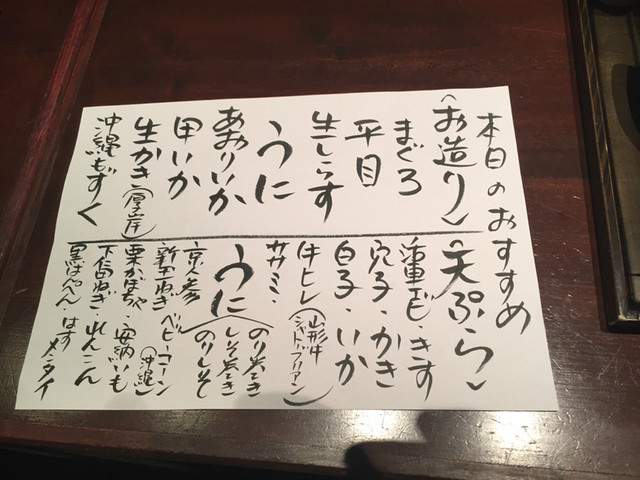 本日のおすすめ
〈お造り〉
まぐろ
平目
生しらす
うに
あおりいか
甲いか
生かき(厚岸)
沖縄もずく
〈天ぷら〉
海車エビ・きす
穴子・かき
白子・いか
牛ヒレ(山形牛シャトーブリアン)
ササミ・
うに
のり巻き
しそ巻き
のりしそ
京人参
新玉ねぎ ベビーコーン(沖縄)
栗かぼちゃ・安納いも
下仁田ねぎ・れんこん
黒はんぺん・はす
メンタイ